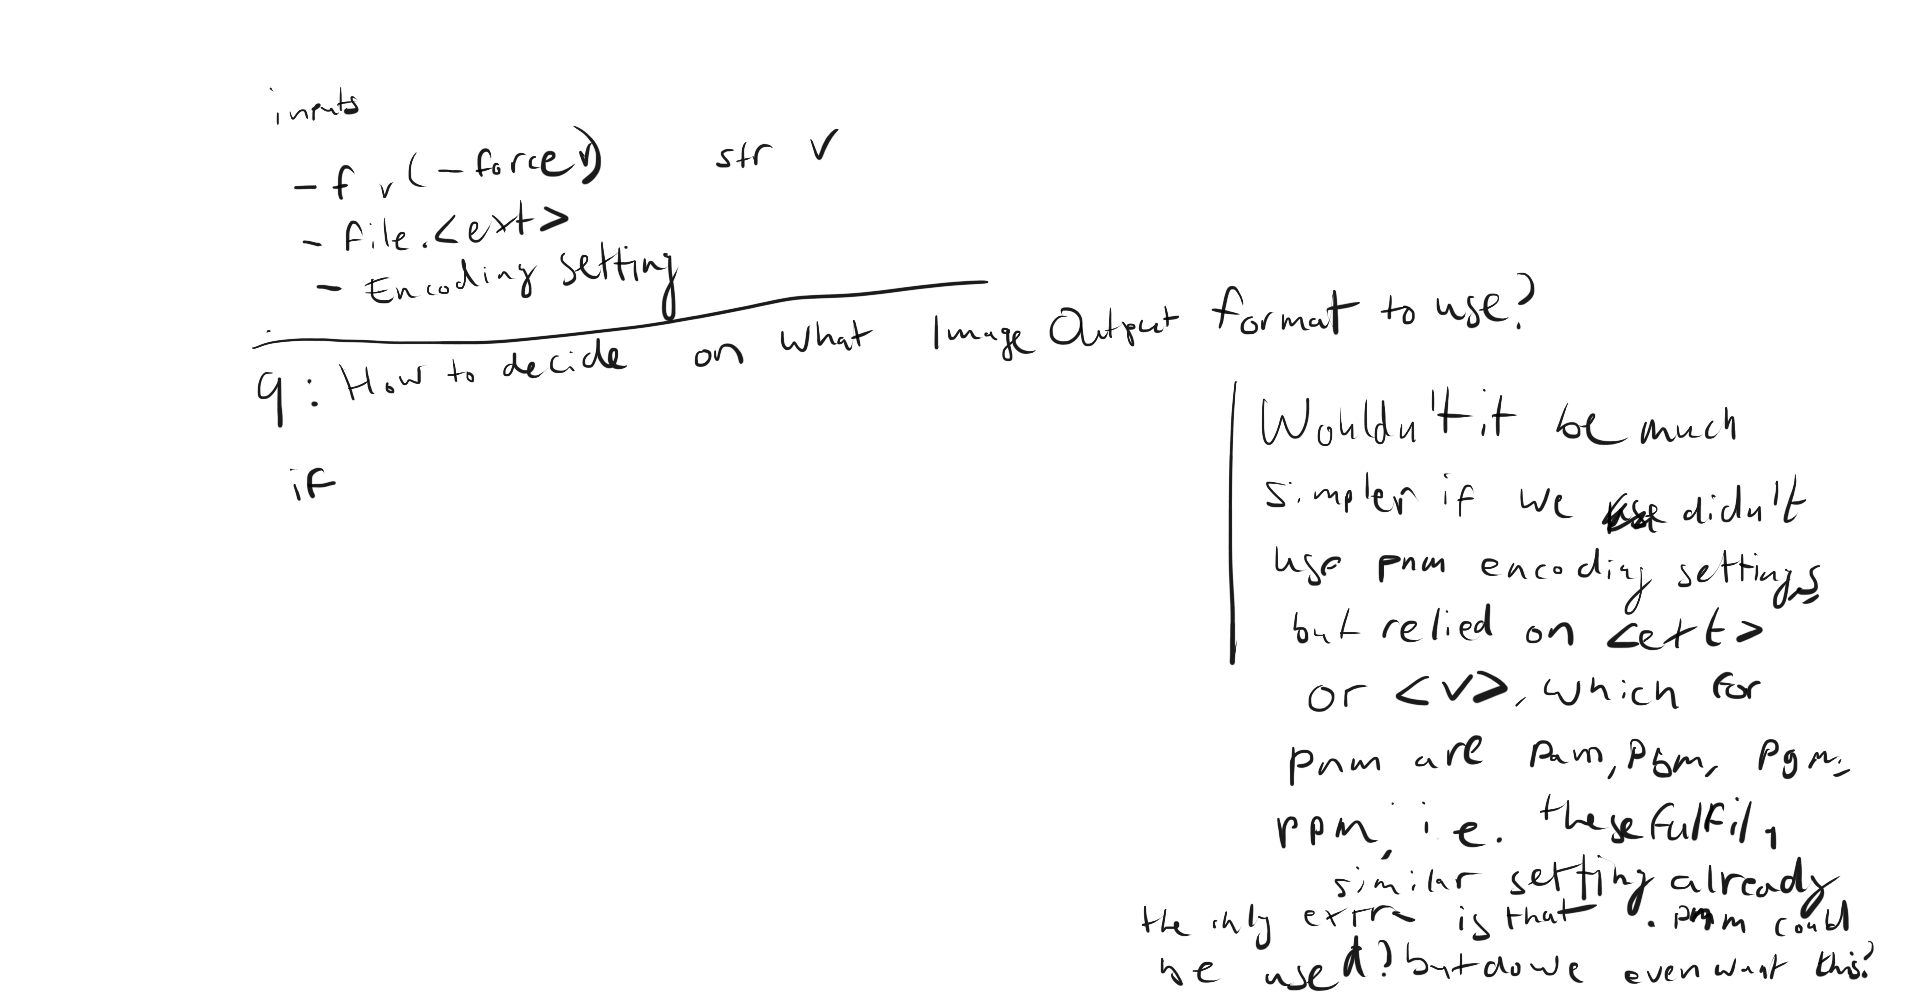 inputs
- f v (-force v) str v
- file.<ext>
- Encoding setting
q: How to decide on what Image Output format to use?
if
Wouldn't it be much
simpler if we didn't
use pnm encoding settings
but relied on <ext>
or <v>, which for
pnm are pam, pbm, pgm,
ppm, i.e. these fulfil
similar setting already
the only extra is that .pnm could
be used? but do we even want this?